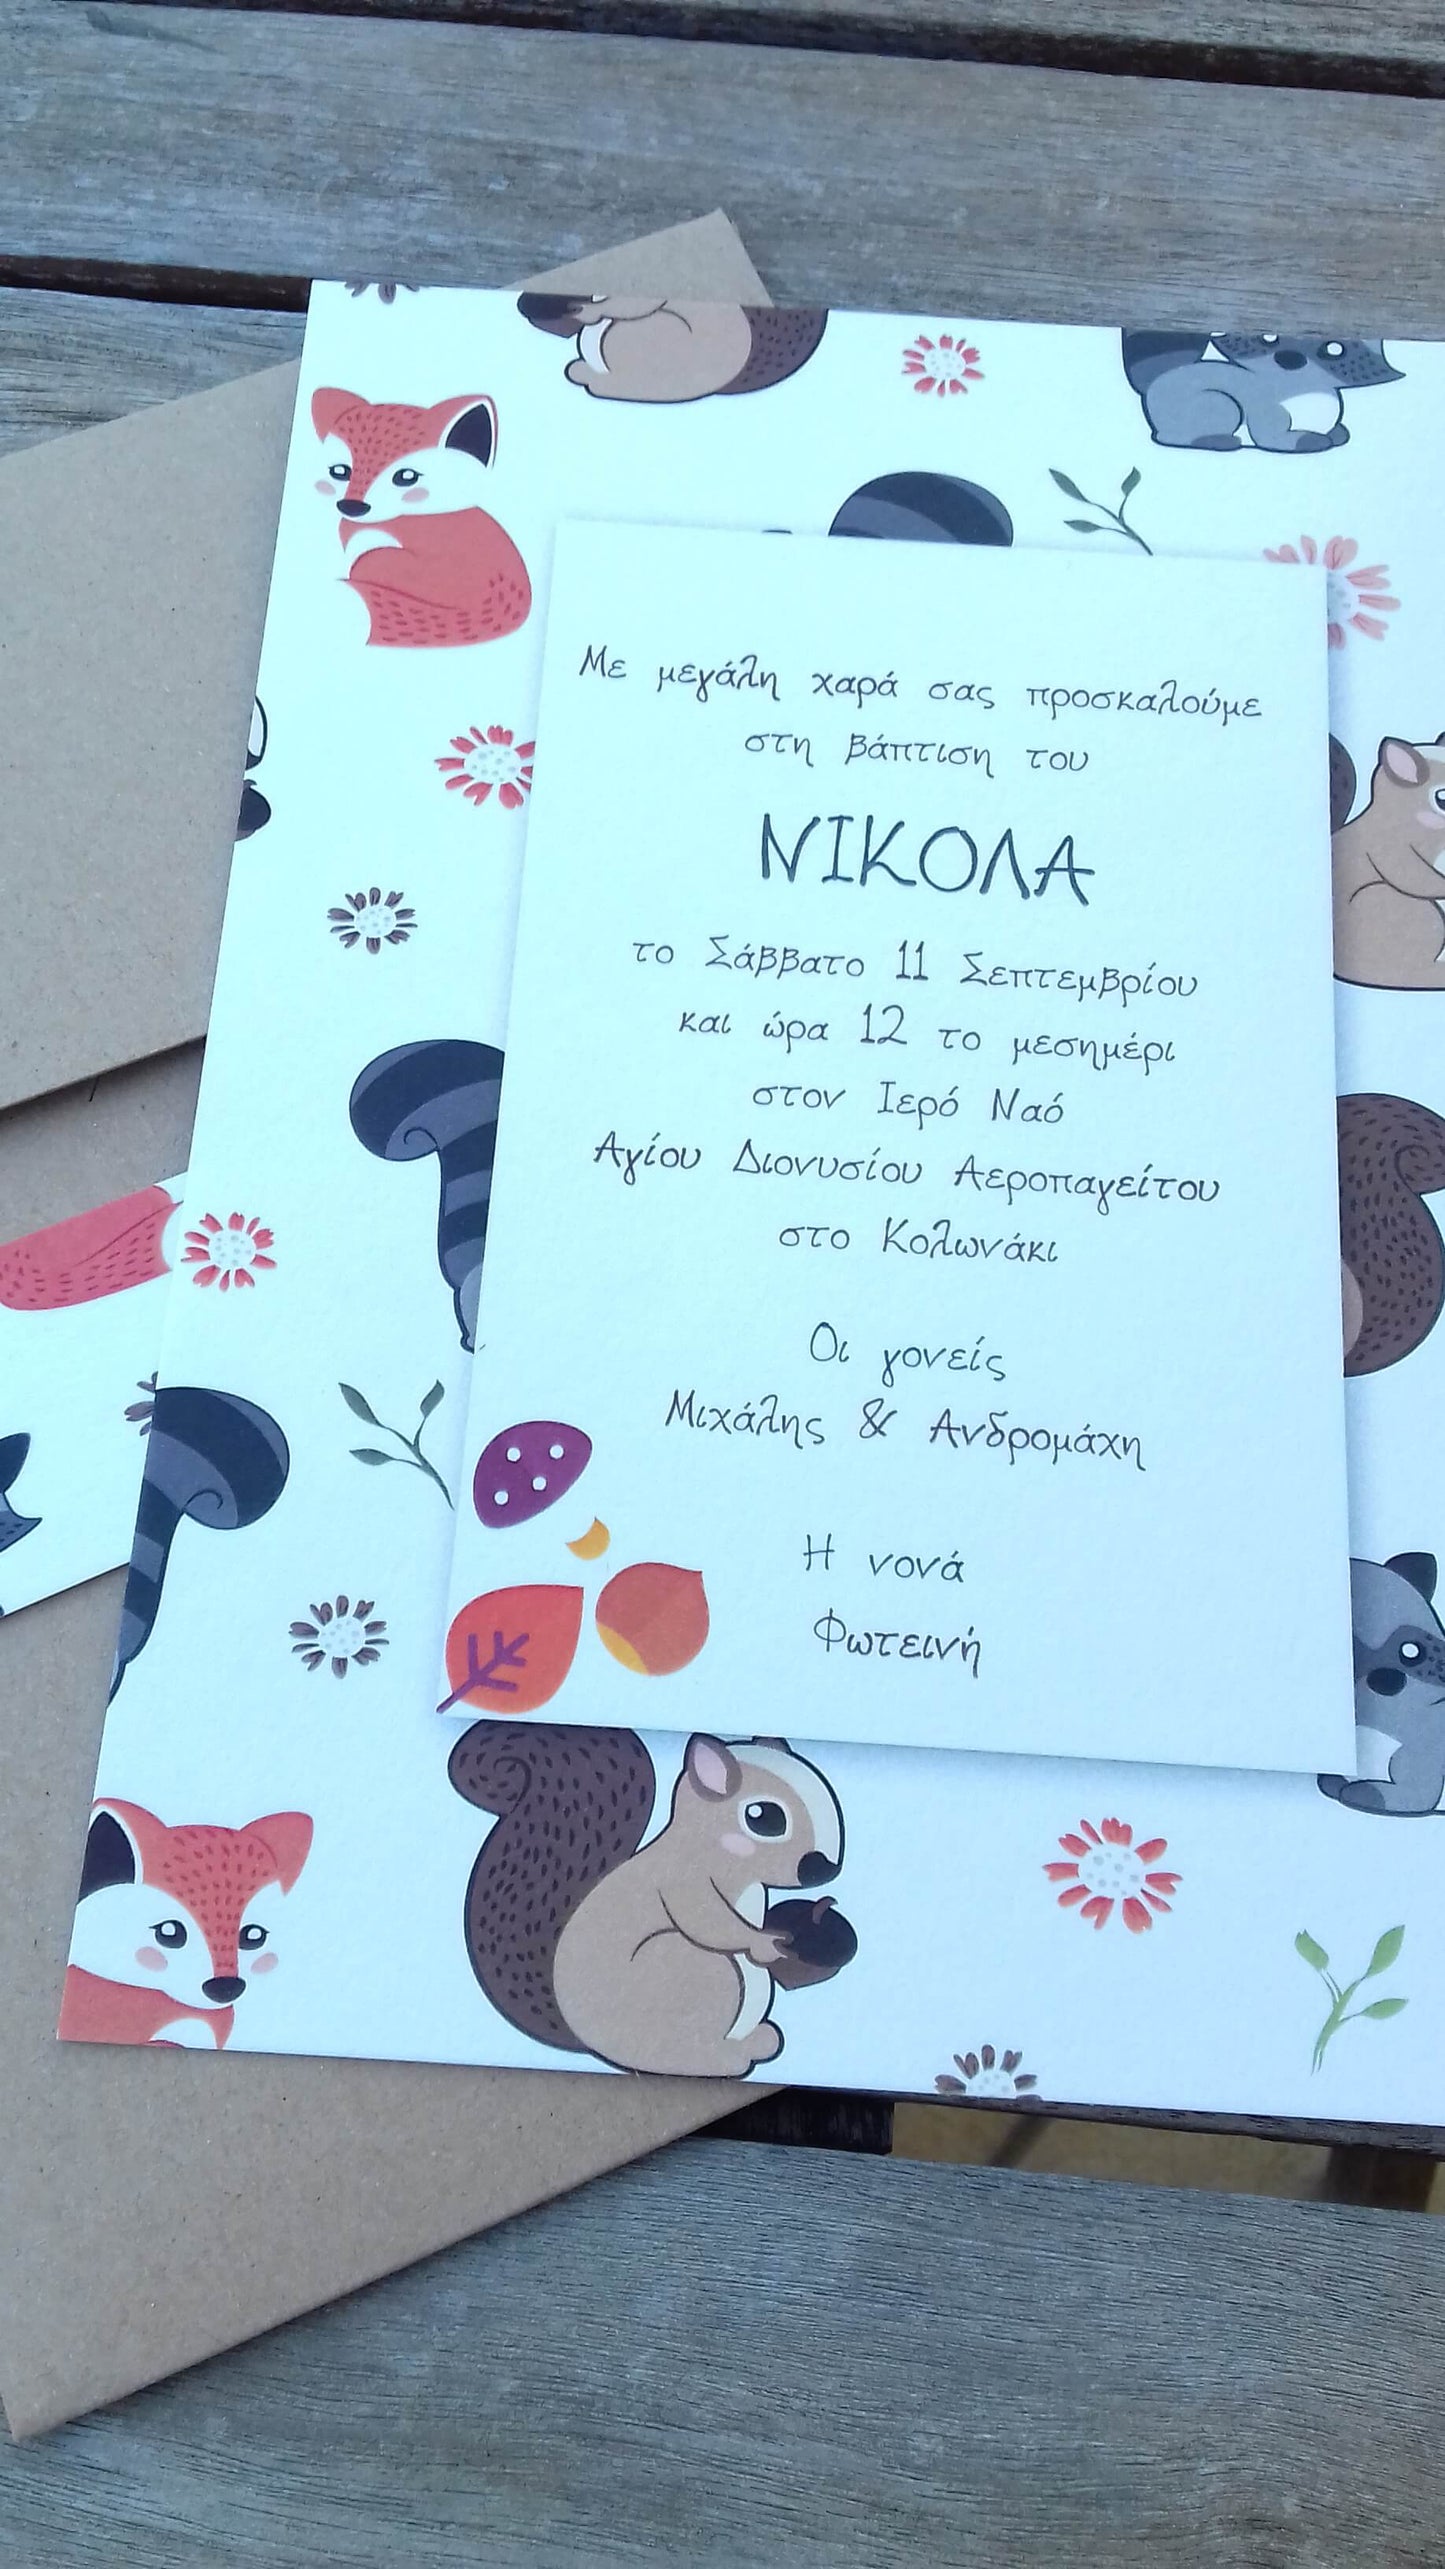 Με μεγάλη χαρά σας προσκαλούμε
στη βάπτιση του
ΝΙΚΟΛΑ
το Σάββατο 11 Σεπτεμβρίου
και ώρα 12 το μεσημέρι
στον Ιερό Ναό
Αγίου Διονυσίου Αεροπαγείτου
στο Κολωνάκι
Οι γονείς
Μιχάλης & Ανδρομάχη
Η νονά
Φωτεινή